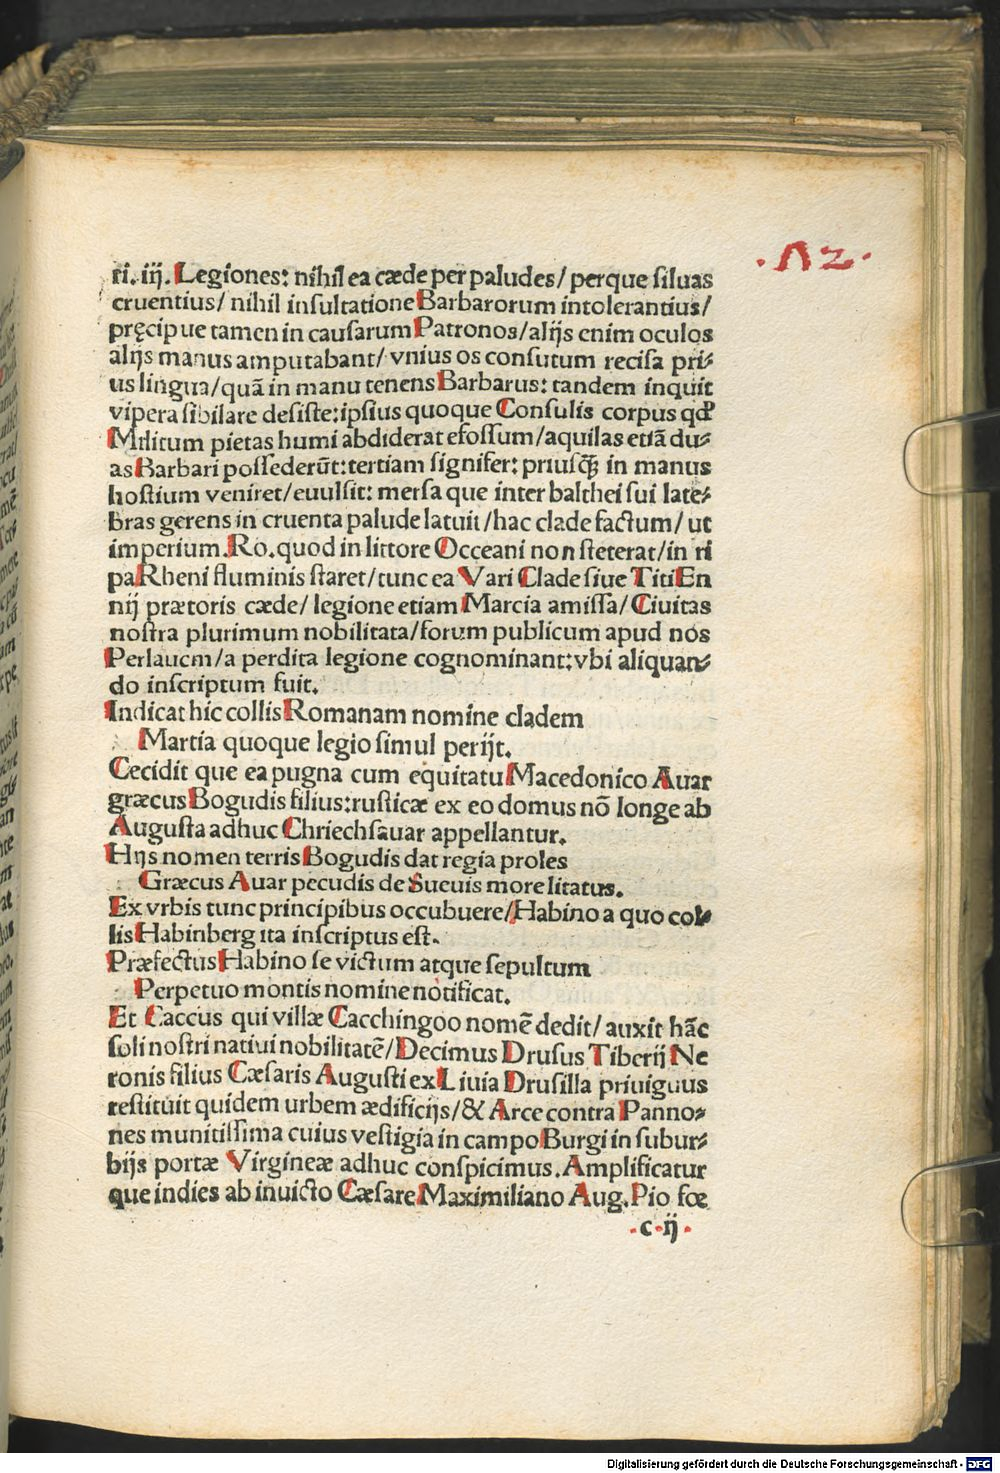 .Λ2.
ri. iij. Legiones: nihil ea cæde per paludes/ perque siluas
cruentius/ nihil insultatione Barbarorum intolerantius/
pręcipue tamen in causarum Patronos/alijs enim oculos
alijs manus amputabant/ vnius os consutum recisa pri⸗
us lingua/quā in manu tenens Barbarus: tandem inquit
vipera sibilare desiste:ipsius quoque Consulis corpus qđ
Militum pietas humi abdiderat efossum/aquilas etiā du⸗
as Barbari possederūt:tertiam signifer: priusꝙ̄ in manus
hostium veniret/euulsit: mersa que inter balthei sui late⸗
bras gerens in cruenta palude latuit/hac clade factum/ ut
imperium.Ro.quod in littore Occeani non steterat/in ri
pa Rheni fluminis staret/tunc ea Vari Clade siue Titi En
nij prætoris cæde/ legione etiam Marcia amissa/ Ciuitas
nostra plurimum nobilitata/forum publicum apud nos
Perlauem/a perdita legione cognominant:vbi aliquan⸗
do inscriptum fuit.
Indicat hic collis Romanam nomine cladem
Martia quoque legio simul perijt.
Cecidit que ea pugna cum equitatu Macedonico Auar
græcus Bogudis filius:rusticæ ex eo domus nō longe ab
Augusta adhuc Chriechsauar appellantur.
Hijs nomen terris Bogudis dat regia proles
Græcus Auar pecudis de Sueuis more litatus.
Ex vrbis tunc principibus occubuere/Habino a quo col
lis Habinberg ita inscriptus est.
Præfectus Habino se victum atque sepultum
Perpetuo montis nomine notificat.
Et Caccus qui villæ Cacchingoo nomē dedit/ auxit hāc
soli nostri natiui nobilitatē/Decimus Drusus Tiberij Ne
ronis filius Cæsaris Augusti ex Liuia Drusilla priuignus
restituit quidem urbem ædificijs/& Arce contra Panno⸗
nes munitissima cuius vestigia in campo Burgi in subur⸗
bijs portæ Virgineæ adhuc conspicimus. Amplificatur
que indies ab inuicto Cæsare Maximiliano Aug. Pio fœ
.c.ij.
Digitalisierung gefördert durch die Deutsche Forschungsgemeinschaft - DFG